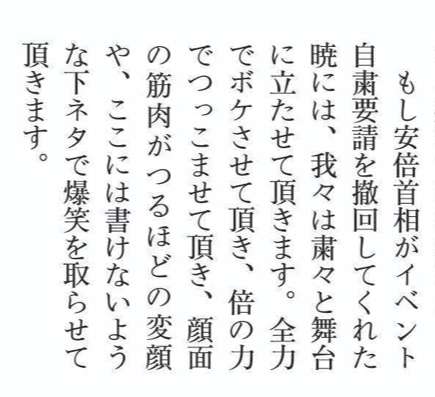 もし安倍首相がイベント
自粛要請を撤回してくれた
暁には、我々は粛々と舞台
に立たせて頂きます。全力
でボケさせて頂き、倍の力
でつっこませて頂き、顔面
の筋肉がつるほどの変顔
や、ここには書けないよう
な下ネタで爆笑を取らせて
頂きます。